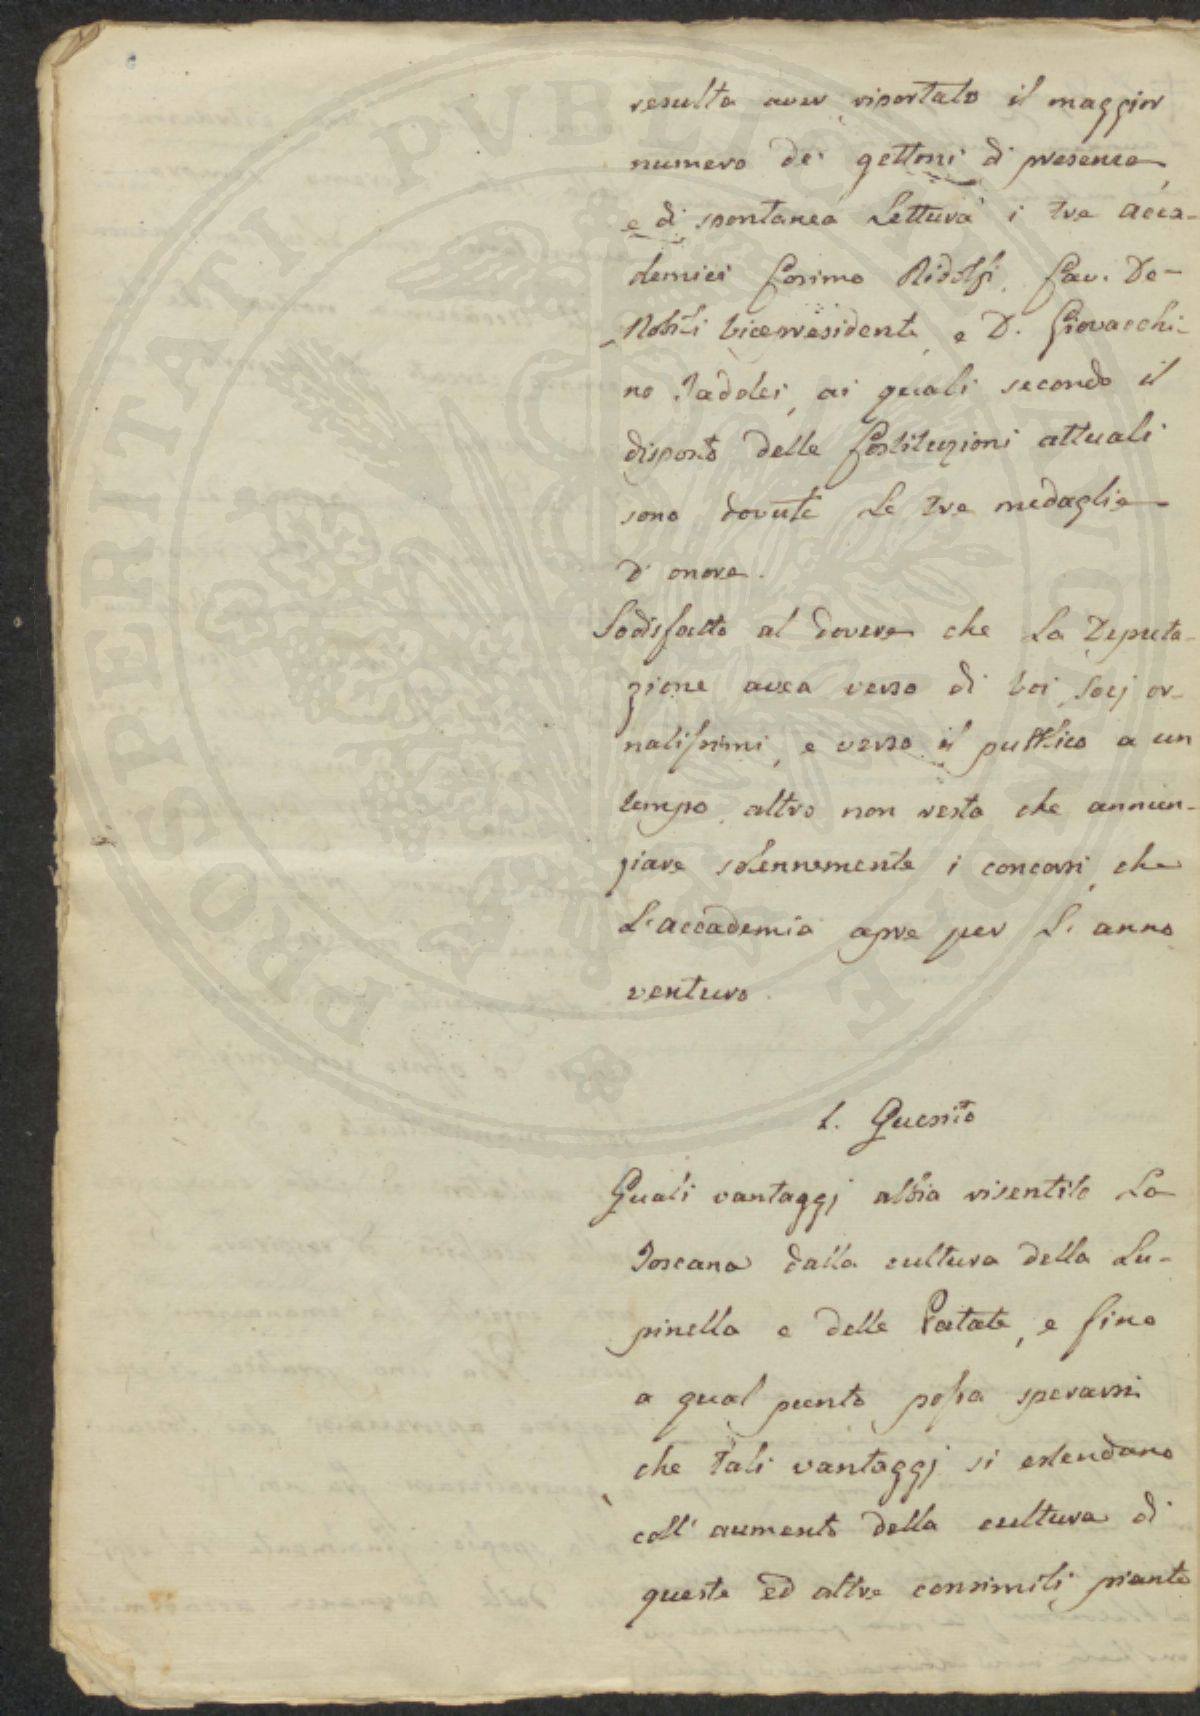 resulta aver riportato il maggior
numero dei gettoni di presenza
e di spontanea Lettura i tre Acca-
demici Cosimo Ridolfi, Cav. De-
Nobili Vicepresidente, e D. Giovacchi-
no Taddei, ai quali secondo il
disposto delle Costituzioni attuali
sono dovute le tre medaglie
d'onore.
Sodisfatto al dovere che La Deputa-
zione avea verso di Voi Socj or-
natissimi, e verso il pubblico a un
tempo, altro non resta che annun-
ziare solennemente i concorsi, che
L'accademia apre per L'anno
venturo.
1. Quesito
Quali vantaggj abbia risentito La
Toscana dalla cultura della Lu-
pinella e delle Patate, e fino
a qual punto possa sperarsi
che tali vantaggj si estendano
coll'aumento della cultura di
queste ed altre consimili piante
PROSPERITATI PUBLICAE AUGENDAE